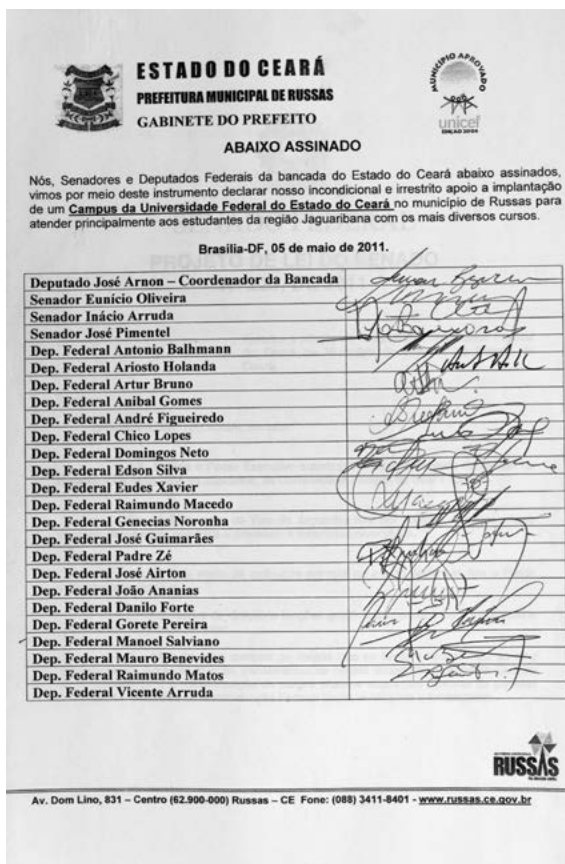 ESTADO DO CEARÁ
PREFEITURA MUNICIPAL DE RUSSAS
GABINETE DO PREFEITO
MUNICÍPIO APROVADO
unicef
EDIÇÃO 2008
ABAIXO ASSINADO
Nós, Senadores e Deputados Federais da bancada do Estado do Ceará abaixo assinados,
vimos por meio deste instrumento declarar nosso incondicional e irrestrito apoio a implantação
de um Campus da Universidade Federal do Estado do Ceará no município de Russas para
atender principalmente aos estudantes da região Jaguaribana com os mais diversos cursos.
Brasília-DF, 05 de maio de 2011.
Deputado José Arnon – Coordenador da Bancada
Senador Eunício Oliveira
Senador Inácio Arruda
Senador José Pimentel
Dep. Federal Antonio Balhmann
Dep. Federal Ariosto Holanda
Dep. Federal Artur Bruno
Dep. Federal Anibal Gomes
Dep. Federal André Figueiredo
Dep. Federal Chico Lopes
Dep. Federal Domingos Neto
Dep. Federal Edson Silva
Dep. Federal Eudes Xavier
Dep. Federal Raimundo Macedo
Dep. Federal Genecias Noronha
Dep. Federal José Guimarães
Dep. Federal Padre Zé
Dep. Federal José Airton
Dep. Federal João Ananias
Dep. Federal Danilo Forte
Dep. Federal Gorete Pereira
Dep. Federal Manoel Salviano
Dep. Federal Mauro Benevides
Dep. Federal Raimundo Matos
Dep. Federal Vicente Arruda
RUSSAS
Av. Dom Lino, 831 – Centro (62.900-000) Russas – CE Fone: (088) 3411-8401 - www.russas.ce.gov.br